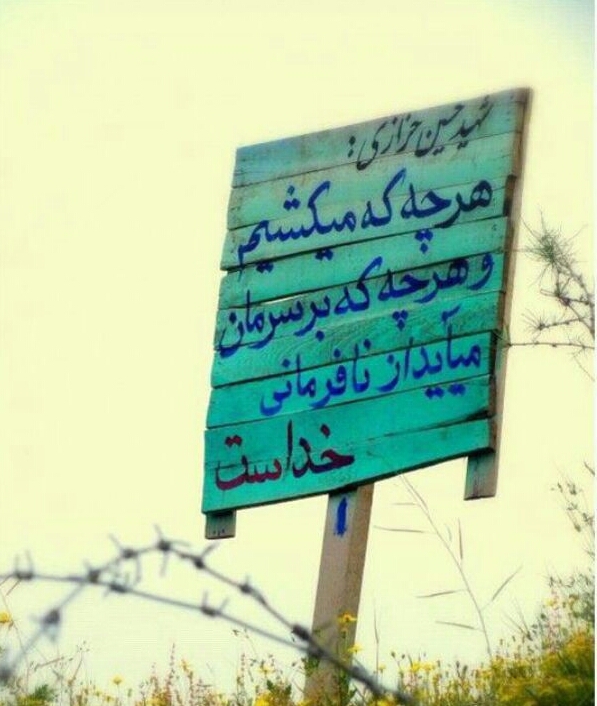 شهید حسین خرازی :
هرچه که میکشیم
و هرچه که برسرمان
میآید از نافرمانی
خداست